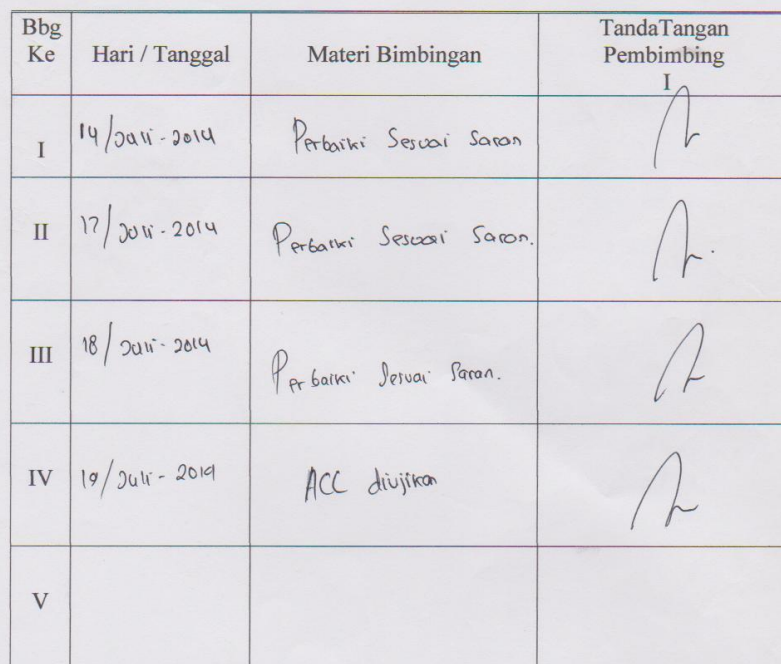 Bbg Ke Hari / Tanggal Materi Bimbingan TandaTangan Pembimbing I
I 14/Juli-2014 Perbaiki Sesuai Saran
II 17/Juli-2014 Perbaiki Sesuai Saran.
III 18/Juli-2014 Perbaiki Sesuai Saran.
IV 19/Juli-2014 ACC diujikan
V